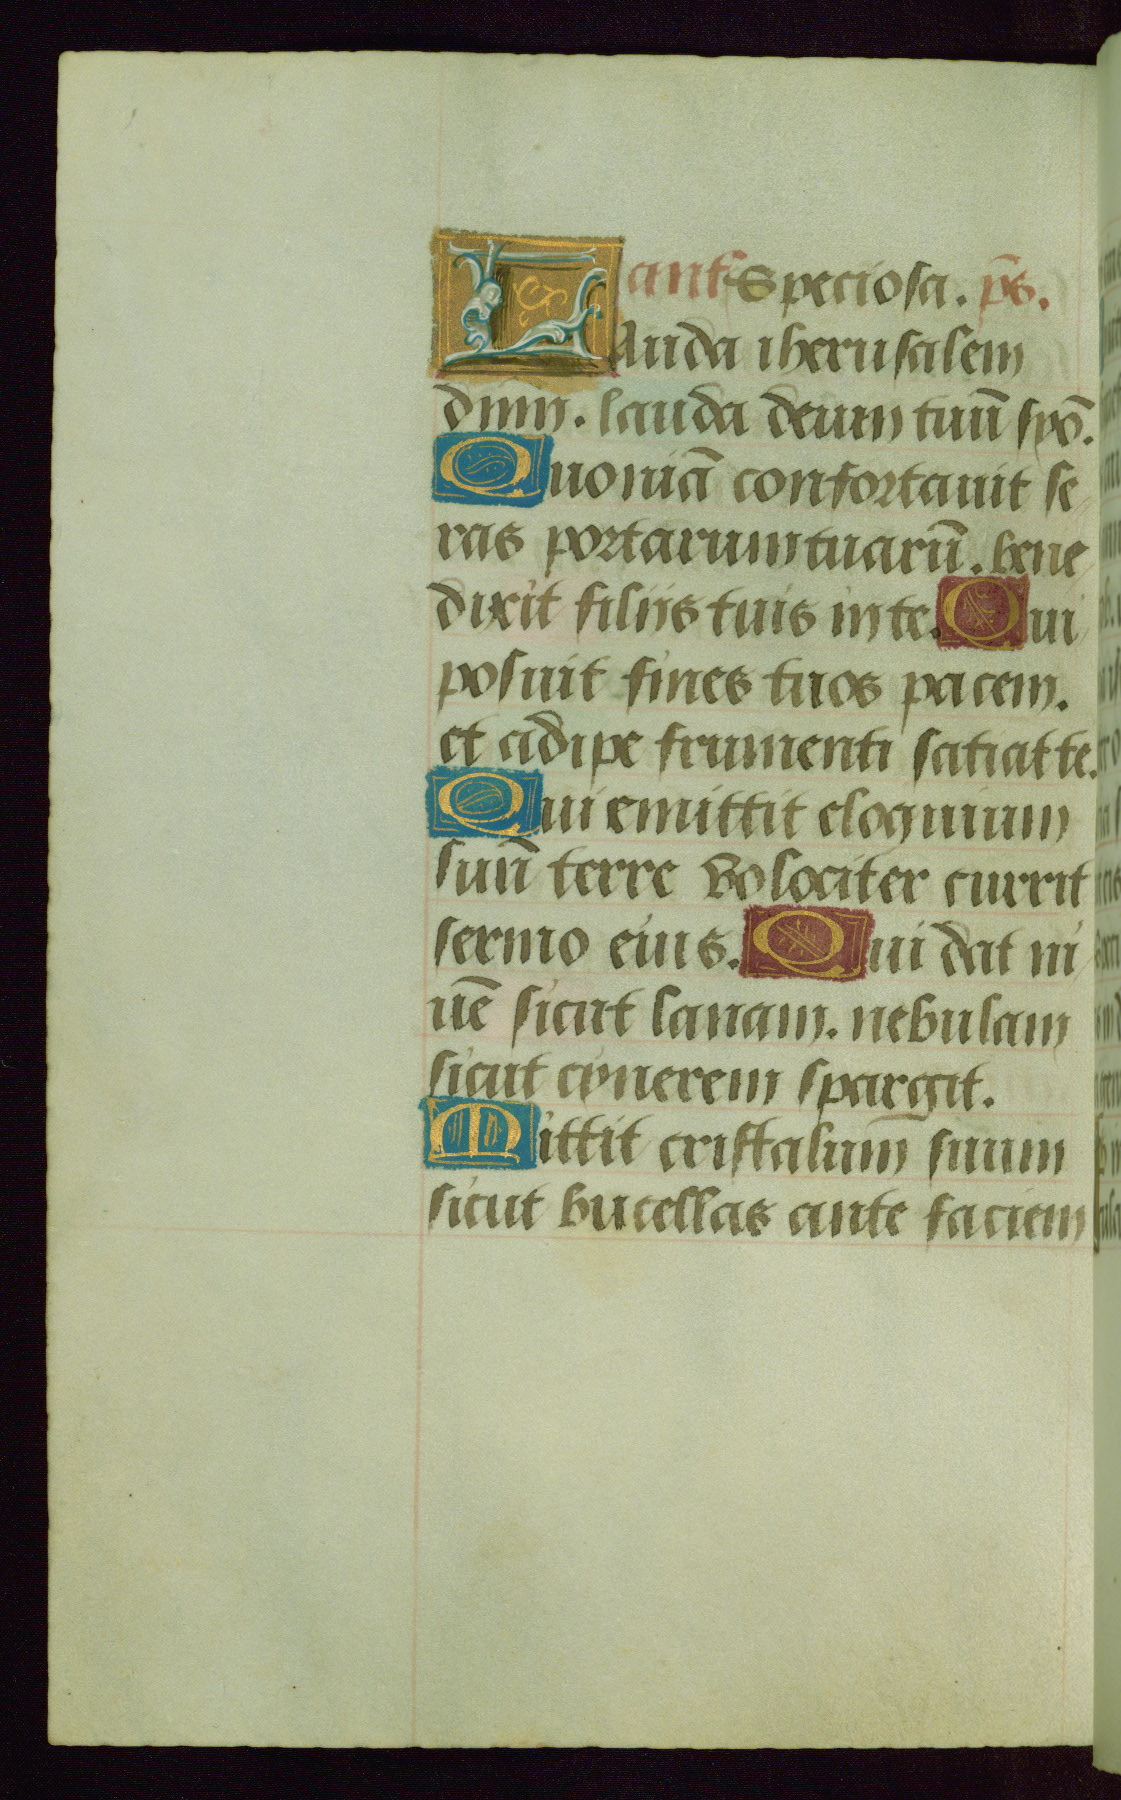 ant Speciosa. ps̄.
LAuda iherusalem
dnm̄. lauda deum tuū syō.
Quoniā confortauit se
ras portarum tuarū. bene
dixit filiis tuis in te. Qui
posuit fines tuos pacem.
et adipe frumenti satiat te.
Qui emittit eloquium
suū terre volociter currit
sermo eius. Qui dat ni
uē sicut lanam. nebulam
sicut cynerem spargit.
Mittit cristalum̄ suum
sicut bucellas ante faciem